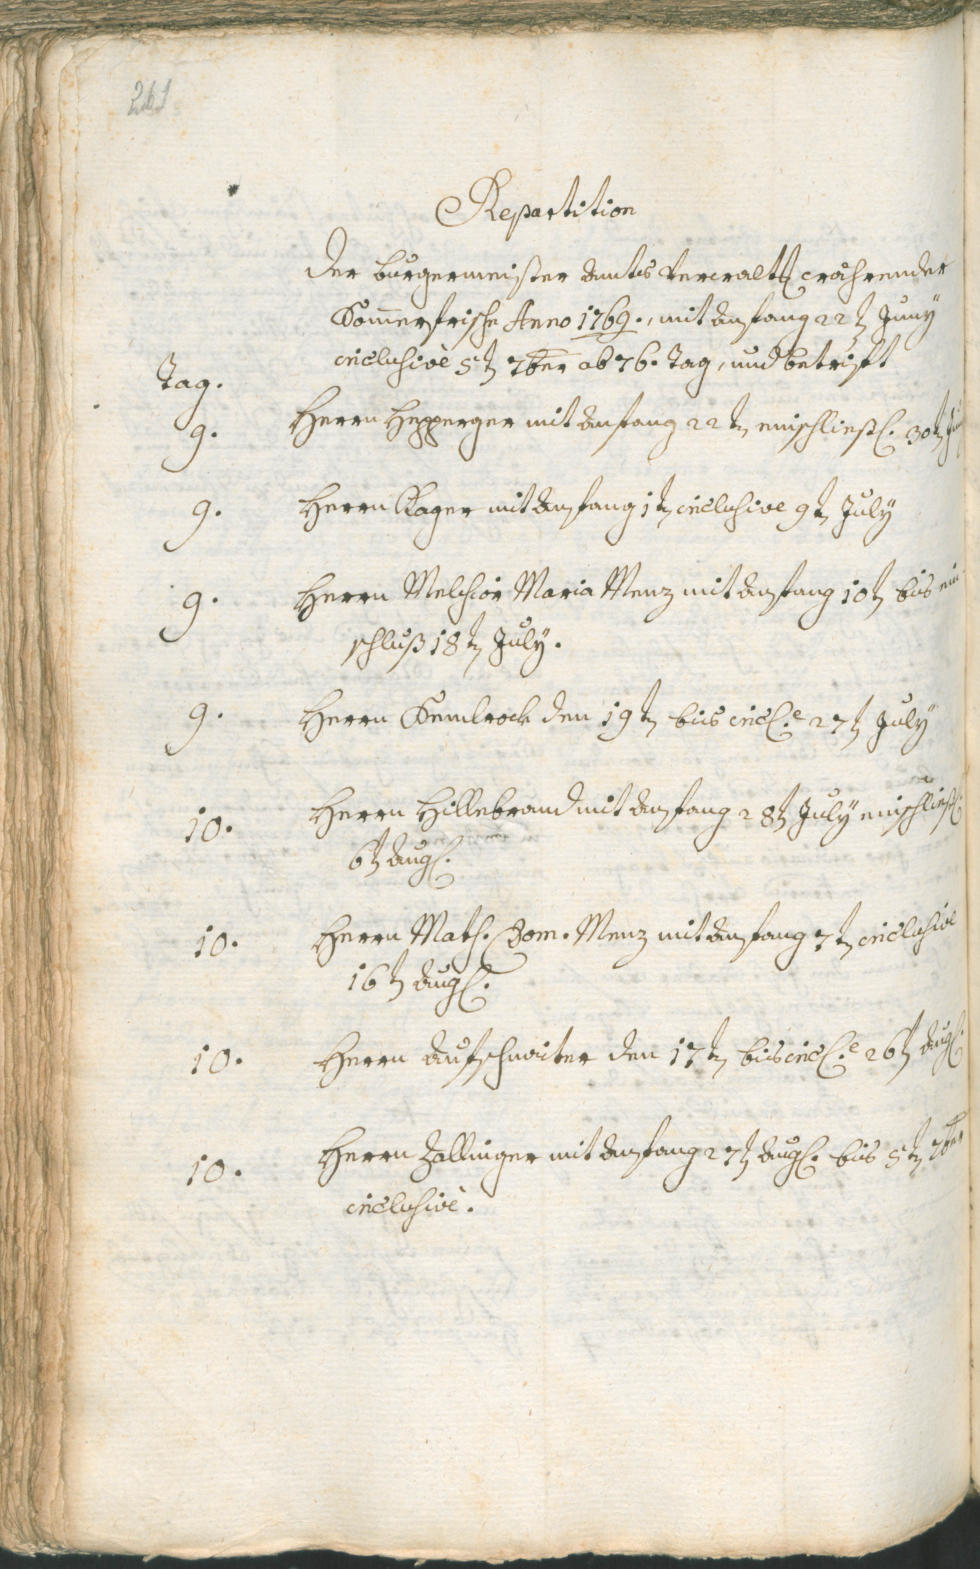 261
Repartition
der burgermeister Ambts Verwalt: wehrender
Sommerfrische Anno 1769., mit Anfang 22t Juny
inclusivè 5t 7ber ab 76. Tag, und betrifft
Tag.
9. Herrn Hepperger mit Anfang 22t, einschliesl. 30t
9. Herrn Kager mit Anfang 1t, inclusive 9t, July
9. Herrn Melchior Maria Menz mit Anfang 10t, bis ein
schluß 18t, July.
9. Herrn den 19t, bis incl.e 27t July
10. Herrn Hillebrand mit Anfang 28t July einschliesl:
6t Aug.
10. Herrn Math. Dom. Menz mit Anfang 7t, inclusive
16t Aug.
10. Herrn Aufschnaiter den 17t, bis incl.e 26t Aug.
10. Herrn Zallinger mit Anfang 27t Aug. bis 5t, 7ber
inclusivè.